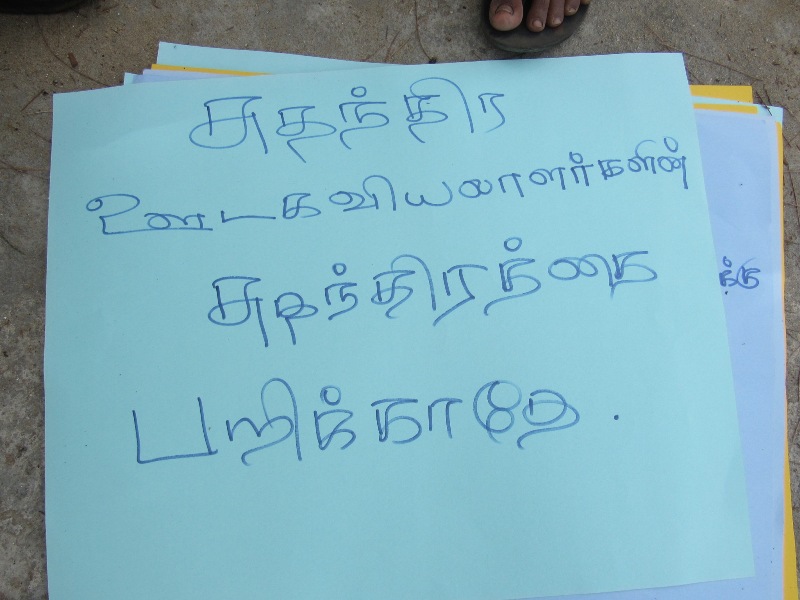 சுதந்திர
ஊடகவியலாளர்களின்
சுதந்திரத்தை
பறிக்காதே.